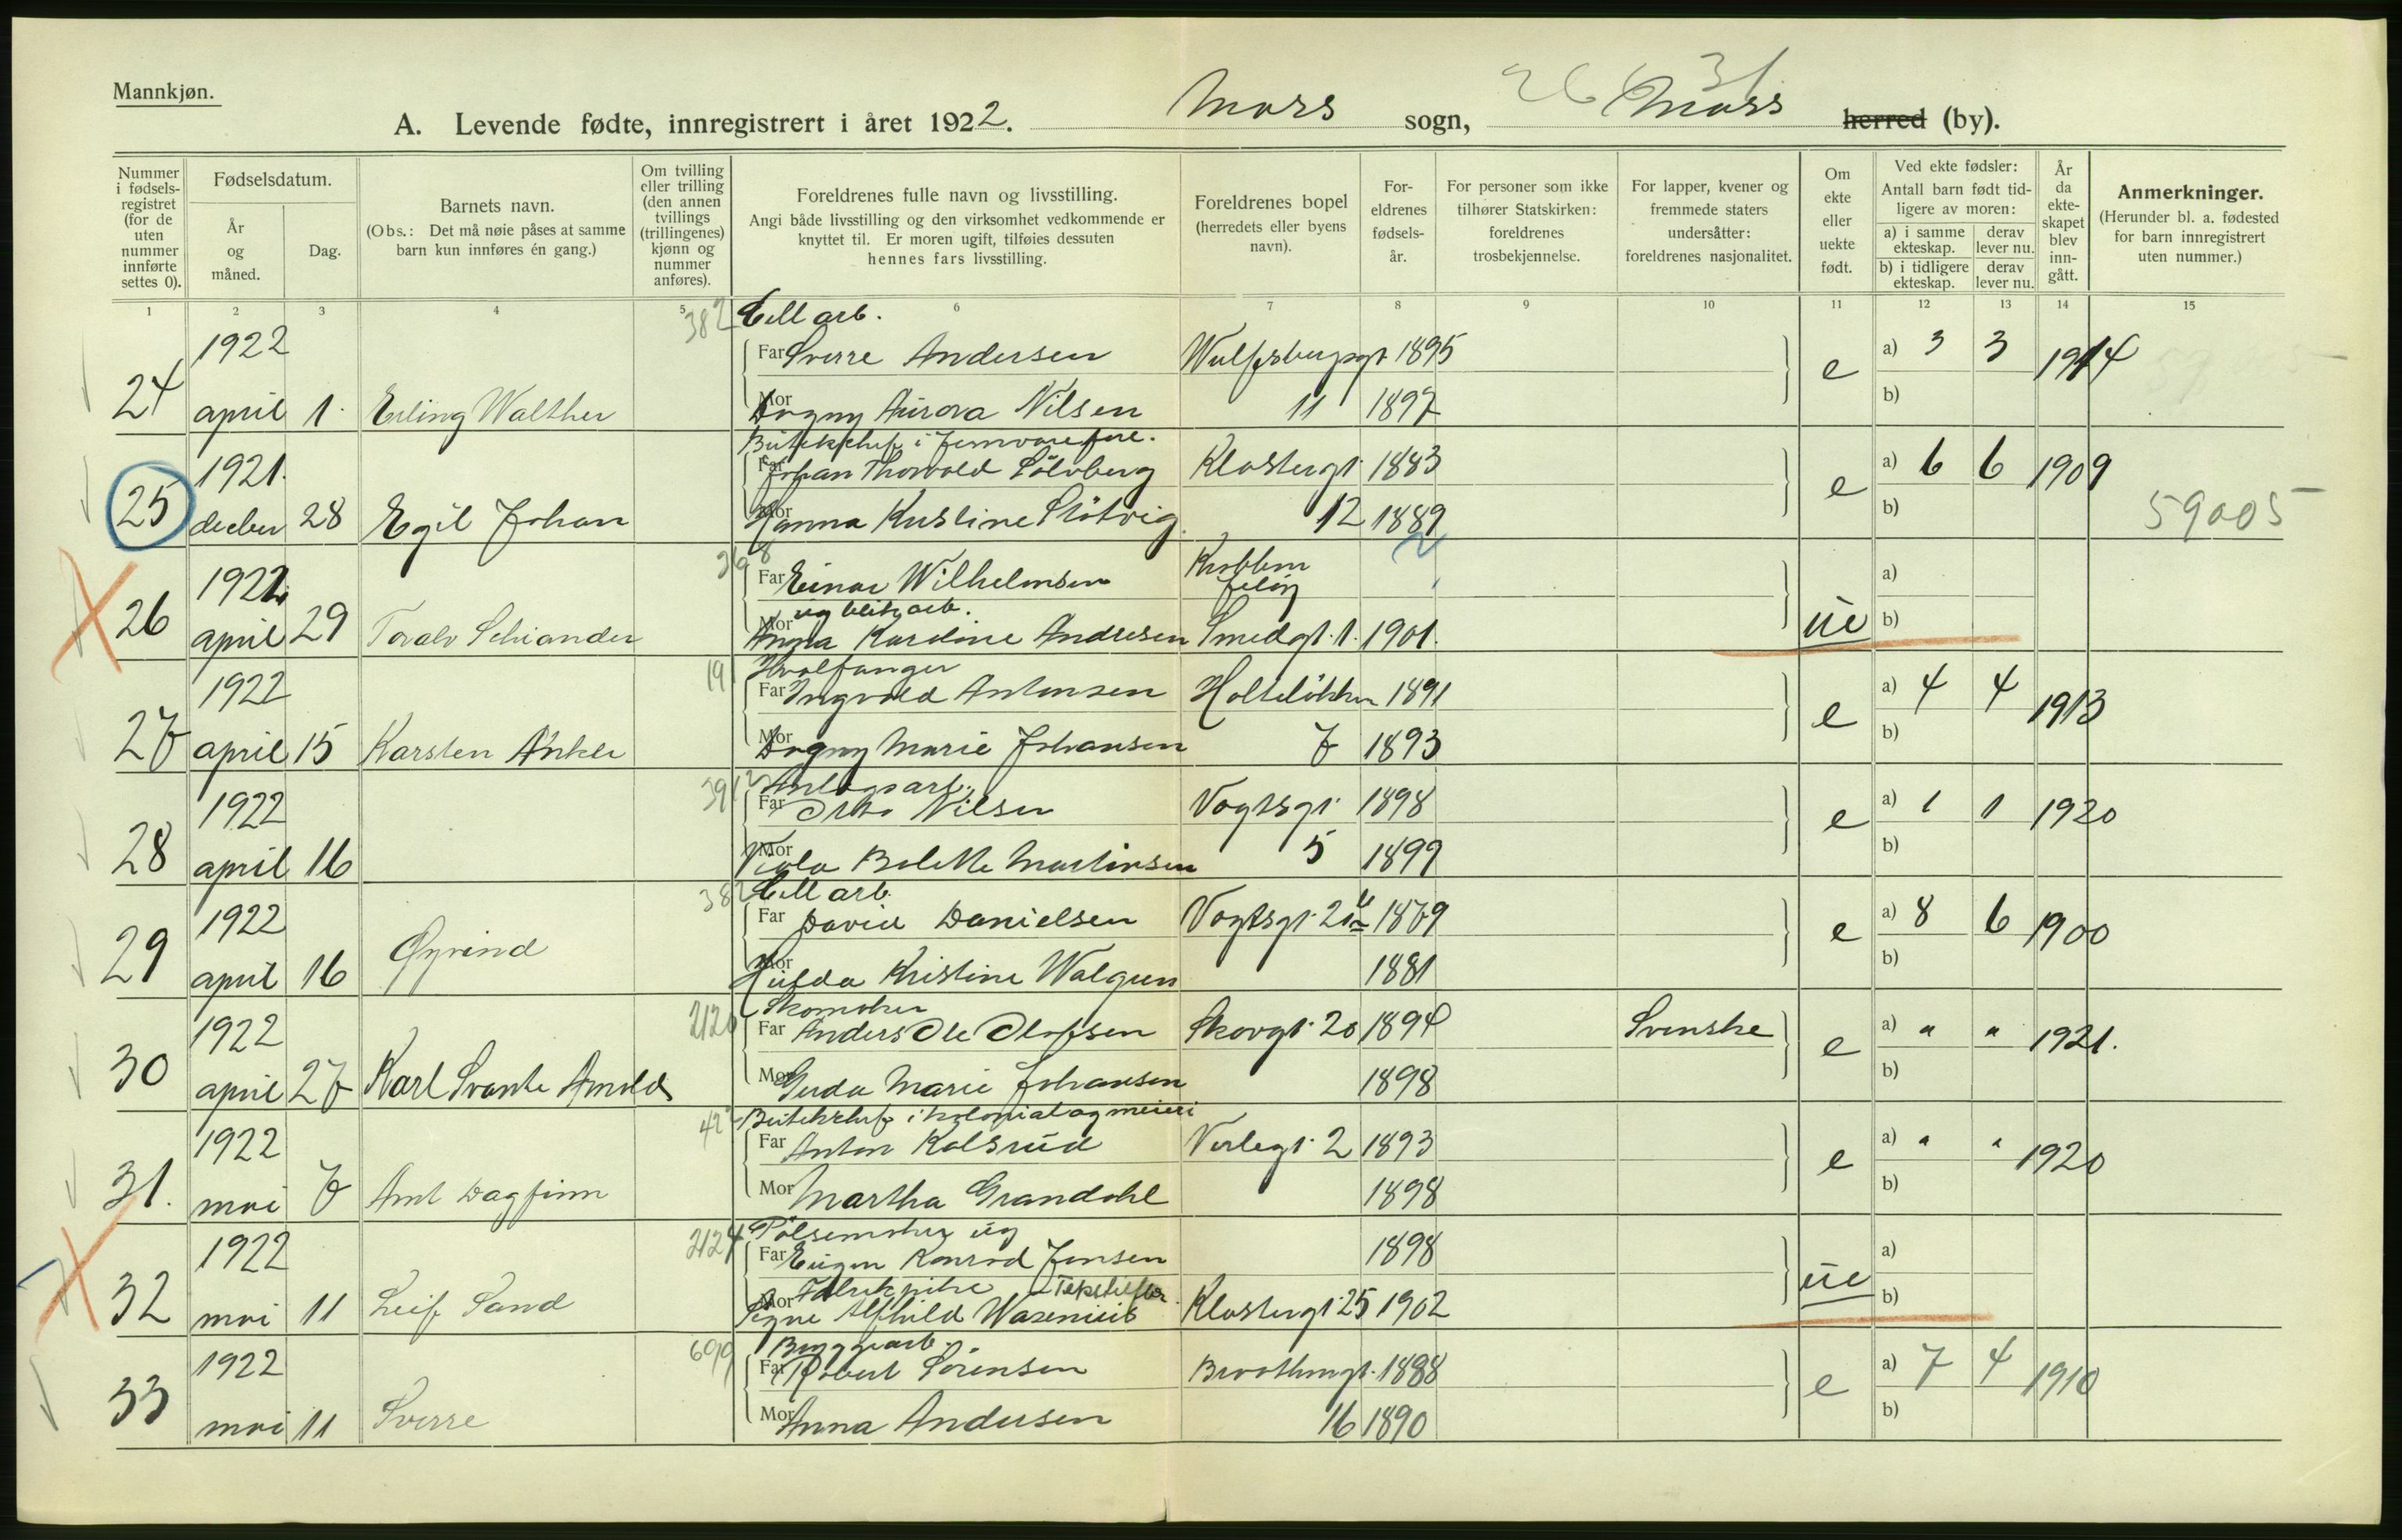 Mannkjøn.
26 31
A. Levende fødte, innregistrert i året 1922. Moss sogn, Moss herred (by).
Nummer i fødsels-registret (for de uten nummer innførte settes 0).
Fødselsdatum.
År og måned.
Dag.
Barnets navn.
(Obs.: Det må nøie påses at samme barn kun innføres én gang.)
Om tvilling eller trilling (den annen tvillings (trillingenes) kjønn og nummer anføres).
Foreldrenes fulle navn og livsstilling.
Angi både livsstilling og den virksomhet vedkommende er knyttet til. Er moren ugift, tilføies dessuten hennes fars livsstilling.
Foreldrenes bopel (herredets eller byens navn).
For-eldrenes fødsels-år.
For personer som ikke tilhører Statskirken: foreldrenes trosbekjennelse.
For lapper, kvener og fremmede staters undersåtter: foreldrenes nasjonalitet.
Om ekte eller uekte født.
Ved ekte fødsler: Antall barn født tid-ligere av moren:
a) i samme ekteskap. derav lever nu.
b) i tidligere ekteskap. derav lever nu.
År da ekte-skapet blev inn-gått.
Anmerkninger.
(Herunder bl. a. fødested for barn innregistrert uten nummer.)
1 2 3 4 5 6 7 8 9 10 11 12 13 14 15
382 Cell arb.
1922 Far Sverre Andersen Wulfsbergsgt 1895 e a) 3 3 1914
24 april 1. Erling Walther Mor Dagny Aurora Nilsen 11 1897 b)
Butikkchef i jernvareforr.
1921. Far Johan Thorvald Sölvberg Klostergt. 1883 e a) 6 6 1909
25 decbr 28 Egil Johan Mor Hanna Kristine Stötvig. 12 1889 b) 59005
368
1922 Far Einar Wilhelmsen Krobbern Jeløy a)
ug blikarb.
26 april 29 Toralv Schiander Mor Anna Karoline Andresen Smedgt. 1. 1901. ue b)
191 Hvalfanger
1922 Far Ingvald Antonsen Holteløkken 1891 e a) 4 4 1913
27 april 15 Karsten Anker Mor Dagny Marie Johansen 7 1893 b)
391 Anlegsarb.
1922 Far Otto Nilsen Vogtsgt. 1898 e a) 1 1 1920
28 april 16 Mor Viola Bolette Martinsen 5 1899 b)
382 Cell arb.
1922 Far David Danielsen Vogtsgt. 21b 1879 e a) 8 6 1900
29 april 16 Øyvind Mor Hulda Kristine Walgren 1881 b)
212 Skomaker
1922 Far Anders Ole Olofsen Skovgt. 20 1894 Svenske e a) " " 1921.
30 april 27 Karl Svante Arnolds Mor Guda Marie Johansen 1898 b)
42 Butikkchef i kolonial og meieri
1922 Far Anton Kolsrud Verlegt. 2 1893 e a) " " 1920
31. mai 7 Arnt Dagfinn Mor Martha Grandahl 1898 b)
2124 Pölsemaker ug
1922 Far Eugen Konrad Jensen 1898 a)
Fabrikpike Tekstilfbr.
32 mai 11 Leif Sand Mor Signe Alfhild Wasenius Klostergt. 25 1902 ue b)
699 Bryggearb.
1922 Far Robert Sörensen Brothengt. 1888 e a) 7 4 1910
33 mai 11 Sverre Mor Anna Andersen 16 1890 b)